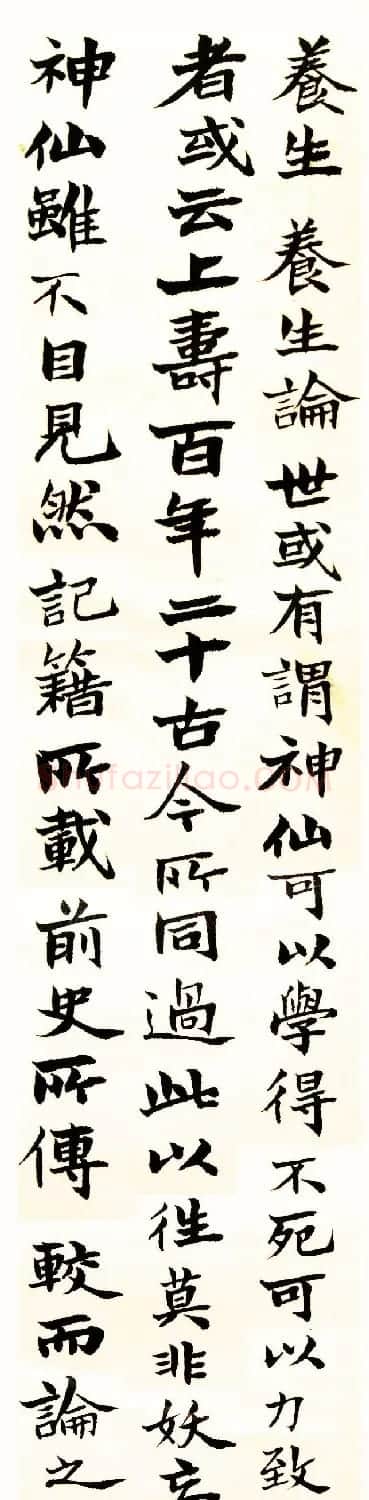 養生 養生論 世或有謂神仙可以學得不死可以力致
者或云上壽百年二十古今所同過此以往莫非妖妄
神仙雖不目見然記籍所載前史所傳 較而論之